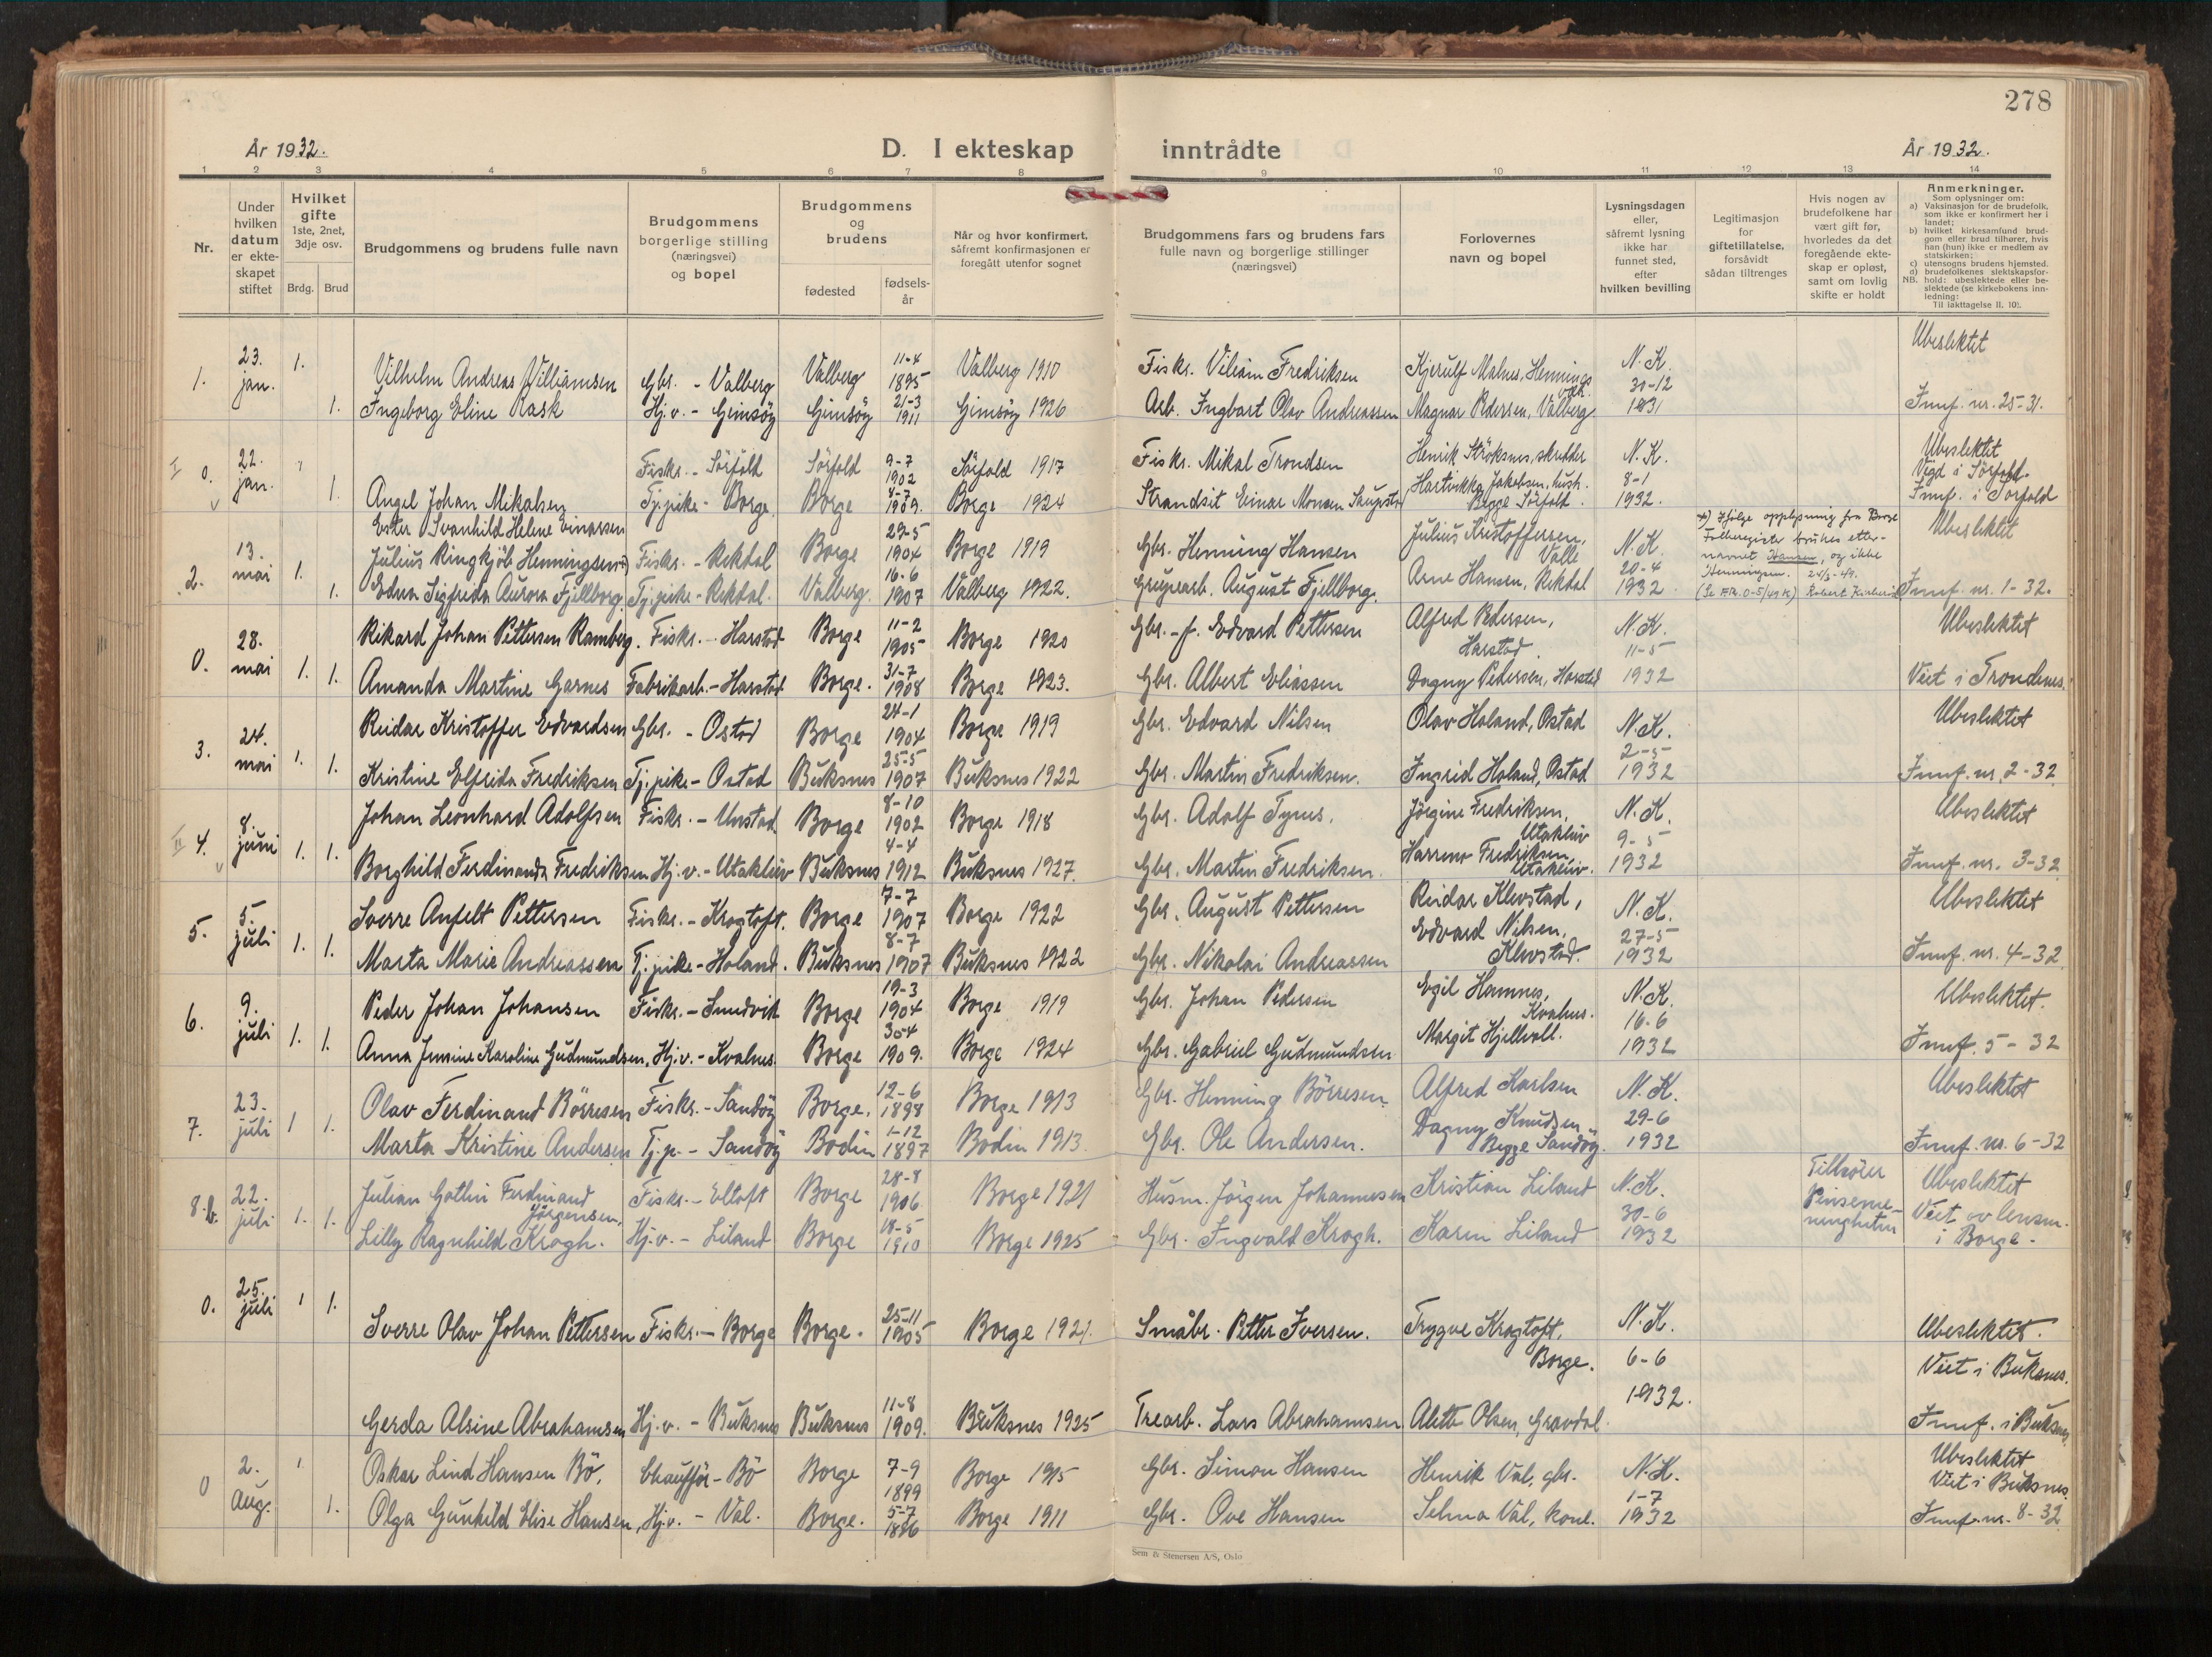 278
År 1932.
D. I ekteskap inntrådte
År 1932.
1 2 3 4 5 6 7 8 9 10 11 12 13 14
Nr.
Under hvilken datum er ekteskapet stiftet
Hvilket gifte 1ste, 2net, 3dje osv.
Brdg. Brud
Brudgommens og brudens fulle navn
Brudgommens borgerlige stilling (næringsvei) og bopel
Brudgommens og brudens
fødested
fødselsår
Når og hvor konfirmert, såfremt konfirmasjonen er foregått utenfor sognet
Brudgommens fars og brudens fars fulle navn og borgerlige stillinger (næringsvei)
Forlovernes navn og bopel
Lysningsdagen eller, såfremt lysning ikke har funnet sted, efter hvilken bevilling
Legitimasjon for giftetillatelse, forsåvidt sådan tiltrenges
Hvis nogen av brudefolkene har vært gift før, hvorledes da det foregående ekteskap er opløst, samt om lovlig skifte er holdt
Anmerkninger.
Som oplysninger om:
a) Vaksinasjon for de brudefolk, som ikke er konfirmert her i landet;
b) hvilket kirkesamfund brudgom eller brud tilhører, hvis han (hun) ikke er medlem av statskirken;
c) utensogns brudens hjemsted.
d) brudefolkenes slektskapsforhold: ubeslektede eller beslektede (se kirkebokens innledning:
NB.
Til iakttagelse II. 10).
1. 23. jan. 1. Vilhelm Andreas Williamsen Gbr. - Valberg Valberg 11-4 1895 Valberg 1910 Fiskr. Viliam Fredriksen Kjerulf Malnes, Hennings N.K. 30-12 Ubeslektet
1. Ingeborg Eline Rask Hj.v. - Gimsöy Gimsöy 21-3 1911 Gimsöy 1926 Arb. Ingbart Olav Andreassen Magnar Pedersen, Valberg 1931 Innf. nr. 25-31.
I 0. 22. jan. 1 Angel Johan Mikalsen Fiskr. - Sörfold Sörfold 9-7 1902 Sörfold 1917 Fiskr. Mikal Trondsen Henrik Ströksnes, skredder N.K. 8-1 Ubeslektet Vigd i Sörfold.
1. Ester Svanhild Helene Einarsen Tj.pike - Borge Borge 8-7 1909. Borge 1924 Strandsit. Einar Monsen Jakobsen, hush. Begge Sörfold. 1932. Innf. i Sörfold
2. 13. mai 1. Julius Ringkjöb Henningsen Fiskr. - Rekdal Borge 29-5 1904 Borge 1919 Gbr. Henning Hansen Julius Kristoffersen, Valle N.K. 20-4 Ubeslektet
Ifölge opplysning fra Borge Folkeregister brukes etternavnet Hansen, og ikke Henningsen. 24/3-49.
1. Edna Sigfrida Aurora Fjellborg Tj.pike - Rekdal. Valberg. 16-6 1907 Valberg 1922. Gruvearb. August Fjellborg. Arne Hansen, Rekdal 1932 Innf. nr. 1-32.
0. 28. mai 1. 1. Rikard Johan Pettersen Ramberg. Fiskr. - Harstad Borge 11-2 1905 Borge 1920 Gbr.-f. Edvard Pettersen Alfred Pedersen, Harstad. N.K. 11-5 Ubeslektet
Amanda Martine Garnes Fabrikarb. - Harstad Borge. 31-7 1908 Borge 1923. Gbr. Albert Eliassen Dagny Pedersen, Harstad 1932 Viet i Trondenes.
3. 24. mai 1. 1. Reidar Kristoffer Edvardsen Gbr. - Ostad Borge 24-1 1904 Borge 1919 Gbr. Edvard Nilsen Olav Holand, Ostad N.K. 2-5 Ubeslektet
Kristine Elfrida Fredriksen Tj.pike - Ostad Buksnes 25-5 1907 Buksnes 1922 Gbr. Martin Fredriksen. Ingrid Holand, Ostad 1932 Innf. nr. 2-32
II 4. 8. juni 1. 1. Johan Leonhard Adolfsen Fiskr. - Unstad Borge 8-10 1902 Borge 1918 Gbr. Adolf Tynes. Jörgine Fredriksen, Utakleiv N.K. 9-5 Ubeslektet
Borghild Ferdinanda Fredriksen Hj.v. - Utakleiv Buksnes 4-4 1912 Buksnes 1927. Gbr. Martin Fredriksen. Fredriksen, Utakleiv. 1932 Innf. nr. 3-32
5. 5. juli 1. 1. Sverre Anfelt Pettersen Fiskr. - Krogtoft. Borge 7-7 1907 Borge 1922 Gbr. August Pettersen Reidar Klevstad, N.K. 27-5 Ubeslektet
Marta Marie Andreassen Tj.pike - Holand. Buksnes 8-7 1907 Buksnes 1922 Gbr. Nikolai Andreassen Edvard Nilsen, Klevstad. 1932 Innf. nr. 4-32
6. 9. juli 1. 1. Peder Johan Johansen Fiskr. - Sundvik Borge 19-3 1904 Borge 1919 Gbr. Johan Pedersen Egil Hamnes, Kvalnes. N.K. 16-6 Ubeslektet.
Anna Jensine Karoline Gudmundsen, Hj.v. - Kvalnes Borge 30-4 1909. Borge 1924 Gbr. Gabriel Gudmundsen Margit Hjellvoll. 1932 Innf. 5-32
7. 23. juli 1 1. Olav Ferdinand Börresen Fiskr. - Sandöy Borge. 12-6 1898 Borge 1913 Gbr. Henning Börresen. Alfred Karlsen N.K. 29-6 Ubeslektet
Marta Kristine Andersen Tj.p. - Sandöy Bodin 1-12 1897 Bodin 1913. Gbr. Ole Andersen. Dagny Knudsen Begge Sandöy. 1932 Innf. nr. 6-32
8.b. 22. juli 1. 1. Julian Gothin Ferdinand Jörgensen, Fiskr. - Eltoft Borge 28-8 1906 Borge 1921 Husm. Jörgen Johannesen Kristian Liland N.K. 30-6 Tilhörer Pinsemenigheten Ubeslektet
Lilly Ragnhild Krogh. Hj.v. - Liland Borge 18-5 1910 Borge 1925 Gbr. Ingvald Krogh. Karen Liland 1932 Viet av lensm. i Borge.
0. 25. juli 1 1. Sverre Olav Johan Pettersen Fiskr. - Borge Borge. 25-11 1905 Borge 1921. Småbr. Petter Iversen. Trygve Krogtoft, Borge. N.K. 6-6 Ubeslektet. Viet i Buksnes.
Gerda Alsine Abrahamsen Hj.v. - Buksnes Buksnes 11-8 1909. Buksnes 1925 Trearb. Lars Abrahamsen Alette Olsen, Gravdal. 1932. Innf. i Buksnes
0 2. Aug. 1 Oskar Lind Hansen Bö. Chaufför - Bö Borge 7-9 1899 Borge 1915 Gbr. Simon Hansen Henrik Val, gbr. N.K. 1-7 Ubeslektet Viet i Buksnes.
1. Olga Gunhild Elise Hansen, Hj.v. - Val. Borge. 5-7 1896 Borge 1911 Gbr. Ove Hansen Selma Val, kone. 1932 Innf. nr. 8-32
Sem & Stenersen A/S, Oslo